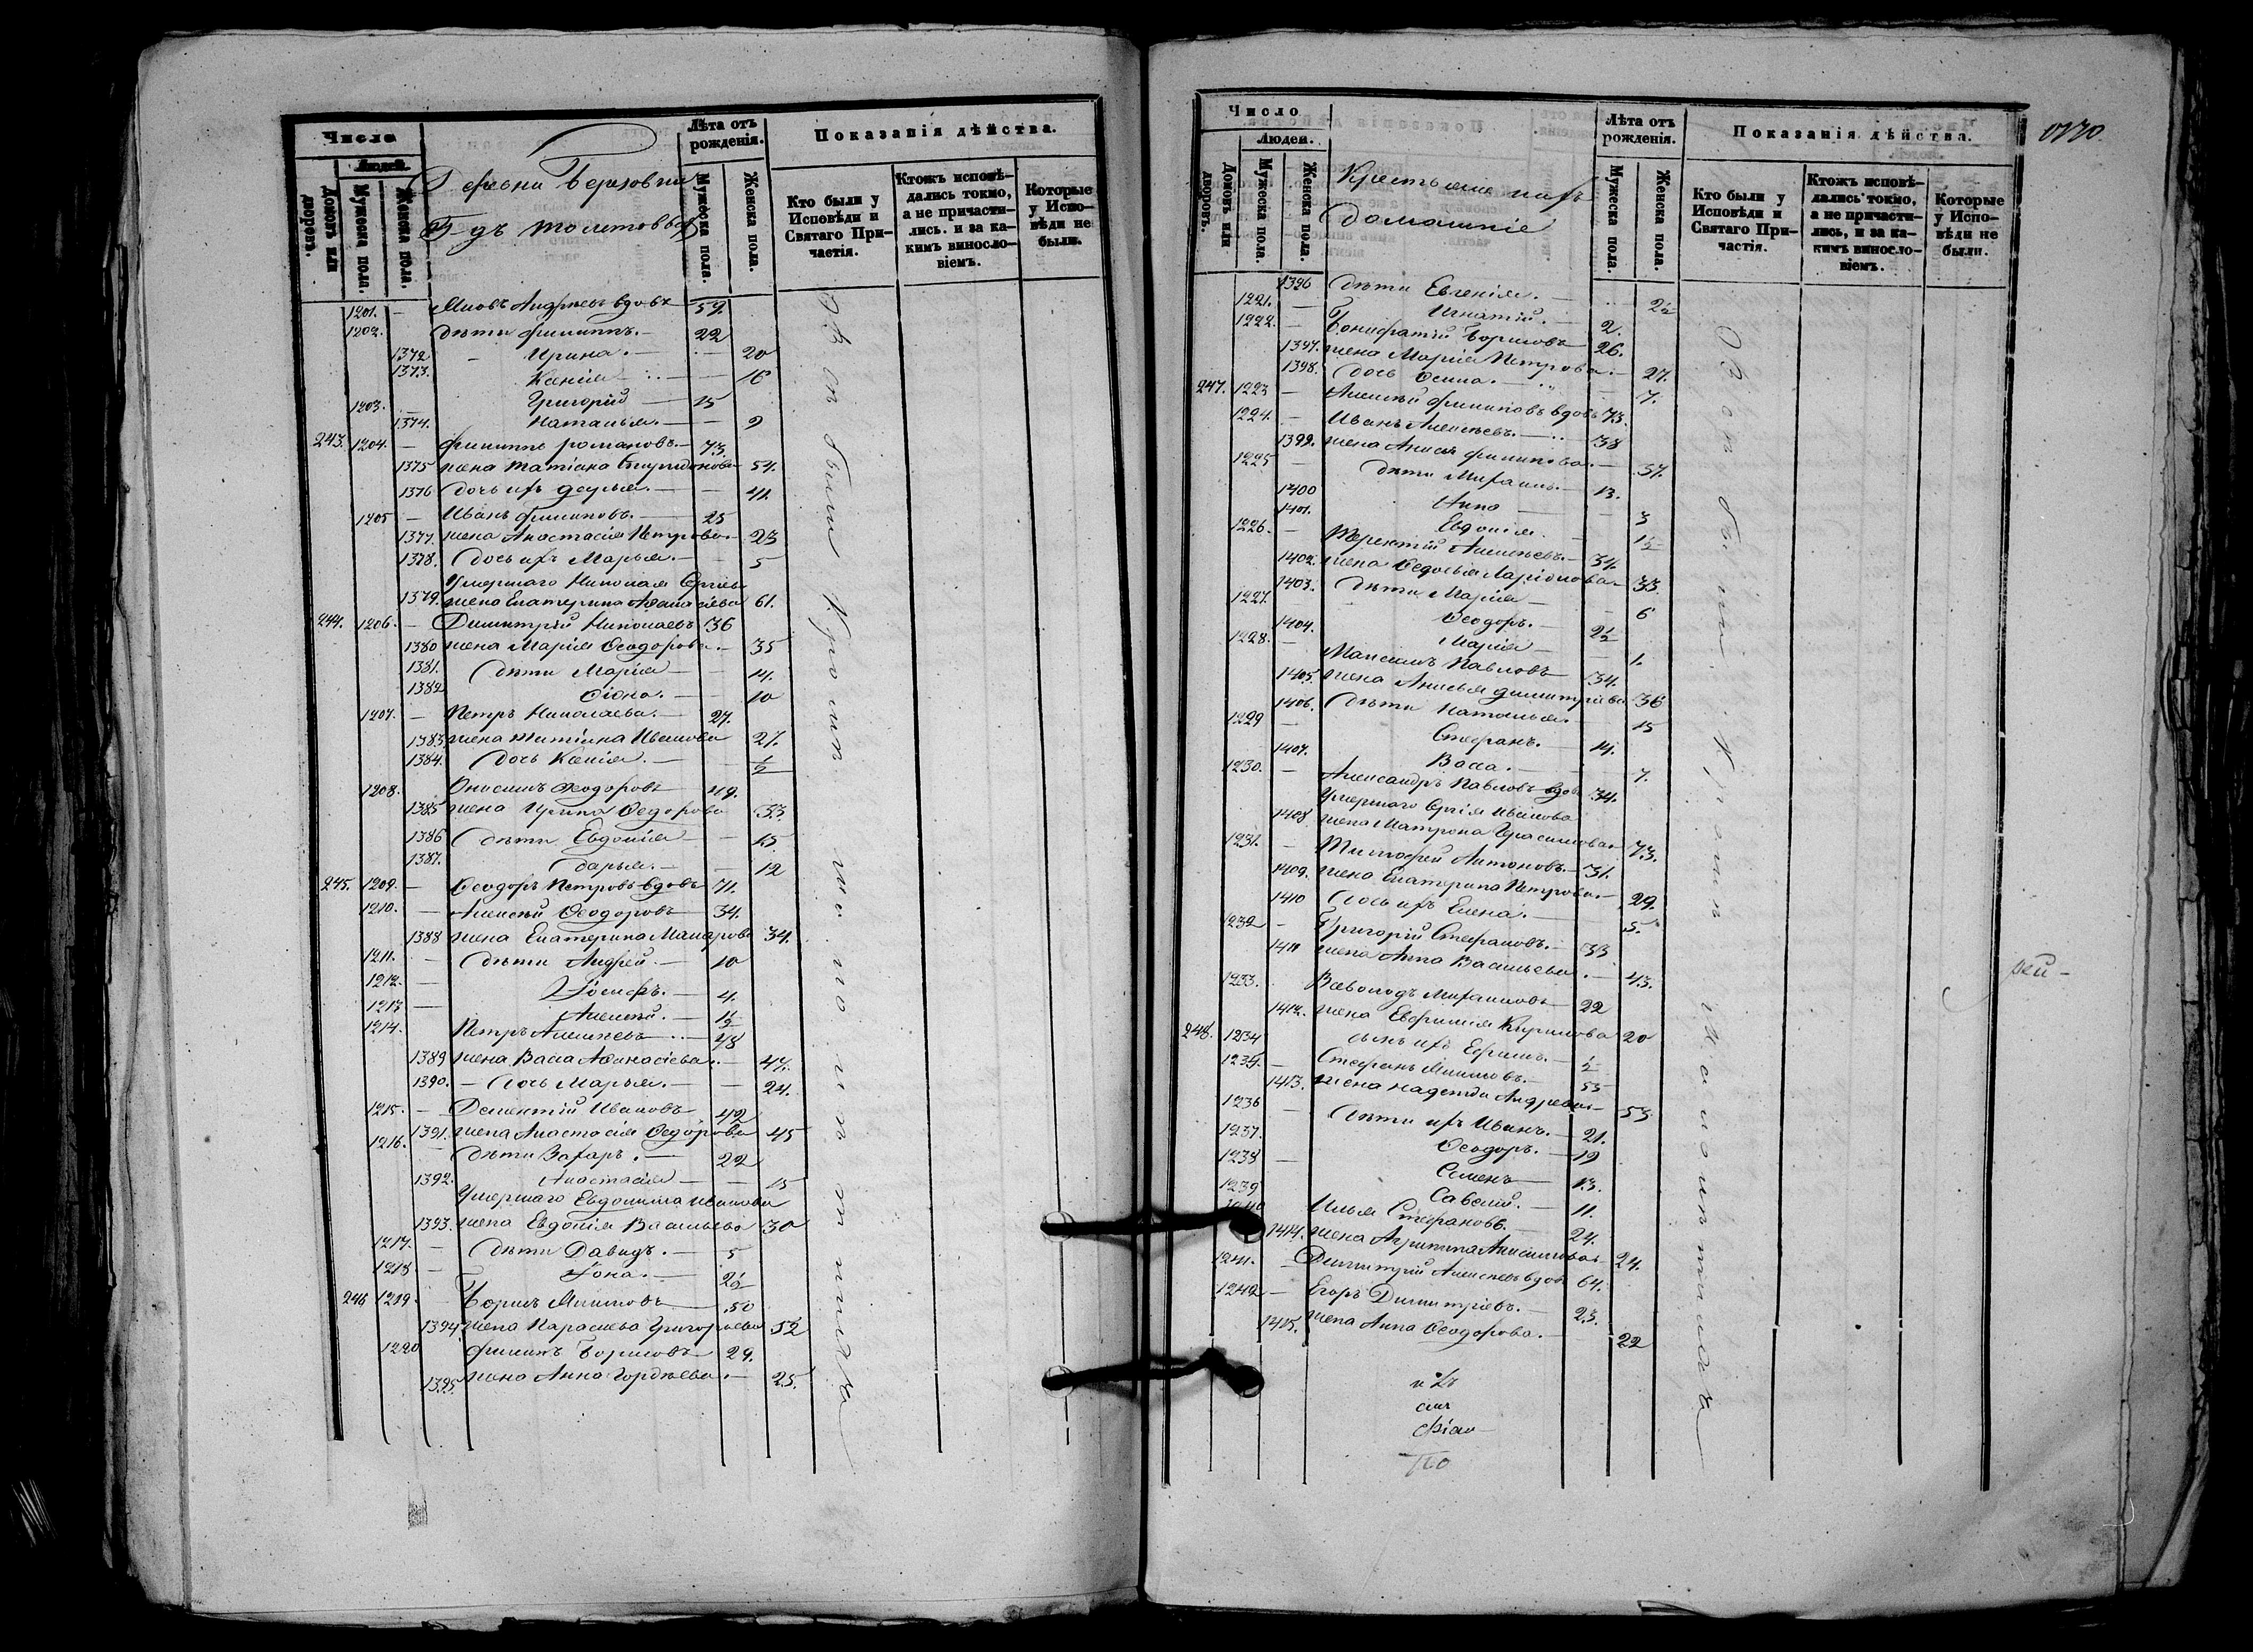 Число
Людей.
Домовъ или дворовъ.
Мужеска пола.
Женска пола.
Деревни Березовки
Г-дъ Толстовыхъ
Лѣта отъ рожденія.
Мужеска пола.
Женска пола.
Показанія дѣйства.
Кто были у Исповѣди и Святаго Причастія.
Ктожъ исповѣдались токмо, а не причастились. и за какимъ винословіемъ.
Которые у Исповѣди не были.
1201. — Андреевъ вдовъ 59.
1202. дѣти Филиппъ. — 22
1372 — Ирина. — 20
1373. Ксенія — 16
1203. — Григорій — 15
1374. Наталья. — 9
243. 1204. — Филиппъ Романовъ. — 73.
1375 жена Татіана Спиридонова 54.
1376 дочь ихъ Дарья. — 41.
1205 — Иванъ Филиповъ. — 25
1377. жена Анастасія Петрова 23
1378. дочь ихъ Марья. — 5
Умершаго Николая
1379. жена Екатерина Афанасіева 61.
244. 1206. — Димитрій Николаевъ 36
1380 жена Марія Ѳеодорова. — 35
1381. дѣти Марія — 14.
1382 — 10
1207. — Петръ Николаевъ. — 27.
1383. жена Татіана Иванова 27.
1384. дочь Ксенія. — ½
1208. Онисимъ Ѳеодоровъ 49.
1385 жена Ирина Ѳедорова 53.
1386 дѣти Евдокія — 15
1387. Дарья. — 12
245. 1209. — Ѳеодоръ Петровъ вдовъ 71.
1210. — Алексѣй Ѳеодоровъ 34.
1388 жена Екатерина Макарова 34.
1211. — дѣти Андрей. — 10
1212. — Іосифъ. — 4.
1213 — Алексѣй. — 1½
1214. Петръ Алексѣевъ — 48
1389 жена Васса Афанасіева. — 47.
1390. — дочь Марья. — 24.
1215. — Дементій Ивановъ 42
1391. жена Анастасія Ѳедорова 45
1216. — дѣти Захаръ. — 22
1392. Анастасія — 15
Умершаго Евдокима Иванова
1393. жена Евдокія Васильева 30
1217. — дѣти Давидъ. — 5
1218 — Іона. — 2½
246 1219. — Борисъ 50
1394 жена Парасковья Григорьева 52
1220 Филипъ Борисовъ 29.
1395. жена Анна Гордѣева. — 25.
Число
Людей.
Домовъ или дворовъ.
Мужеска пола.
Женска пола.
Крестьяне ихъ
домашніе
Лѣта отъ рожденія.
Мужеска пола.
Женска пола.
Показанія дѣйства.
Кто были у Исповѣди и Святаго Причастія.
Ктожъ исповѣдались токмо, а не причастились, и за какимъ винословіемъ.
Которые у Исповѣди не были.
1396 дѣти Евгенія. — 2½
1221. — Игнатій. — 2.
1222. — Бонифатій Борисовъ 26.
1397. жена Марія Петрова. — 27.
1398. дочь — 7.
247. 1223 — Алексѣй Филиповъ вдовъ 73.
1224. — Иванъ Алексѣевъ. — 38
1399. жена Филипова. — 37.
1225 — дѣти Михаилъ. — 13.
1400 Анна — 3
1401. Евдокія. — 1½
1226. — Терентій Алексѣевъ. — 34.
1402. жена Ѳедосья Ларіонова — 33.
1403. дѣти Марія — 6
1227. Ѳеодоръ. — 2½
1404. Марія — 1.
1228. — Максимъ Павловъ 34.
1405. жена Анисья Димитріева 36
1406. дѣти Наталья. 15
1229 — Стефанъ. 14.
1407. Васса. — 7.
1230. — Александръ Павловъ вдовъ 34.
Умершаго Иванова
1408 жена Матрона Герасимова 73.
1231. — Тимофей Антоновъ. — 31.
1409. жена Екатерина Петрова. — 29.
1410 дочь ихъ Елена. — 5.
1232 — Григорій Стефановъ. — 33
1411 жена Анна Васильева. — 43.
1233. Всеволодъ Михаиловъ 22
1412. жена Евфимія Кирилова 20
248. 1234 сынъ ихъ Ефимъ. — ½
1235 — Стефанъ 55
1413. жена Надежда Андреева — 53
1236 — дѣти ихъ Иванъ. — 21.
1237. Ѳеодоръ. — 19
1238 — Семенъ — 13.
1239 Савелій. — 11.
1240 Илья Стефановъ. — 24.
1414. жена Агрипина 24.
1241. — Димитрій Алексѣевъ вдов 64.
1242 — Егоръ Димитріевъ. — 23.
1415. жена Анна Ѳеодорова. — 22